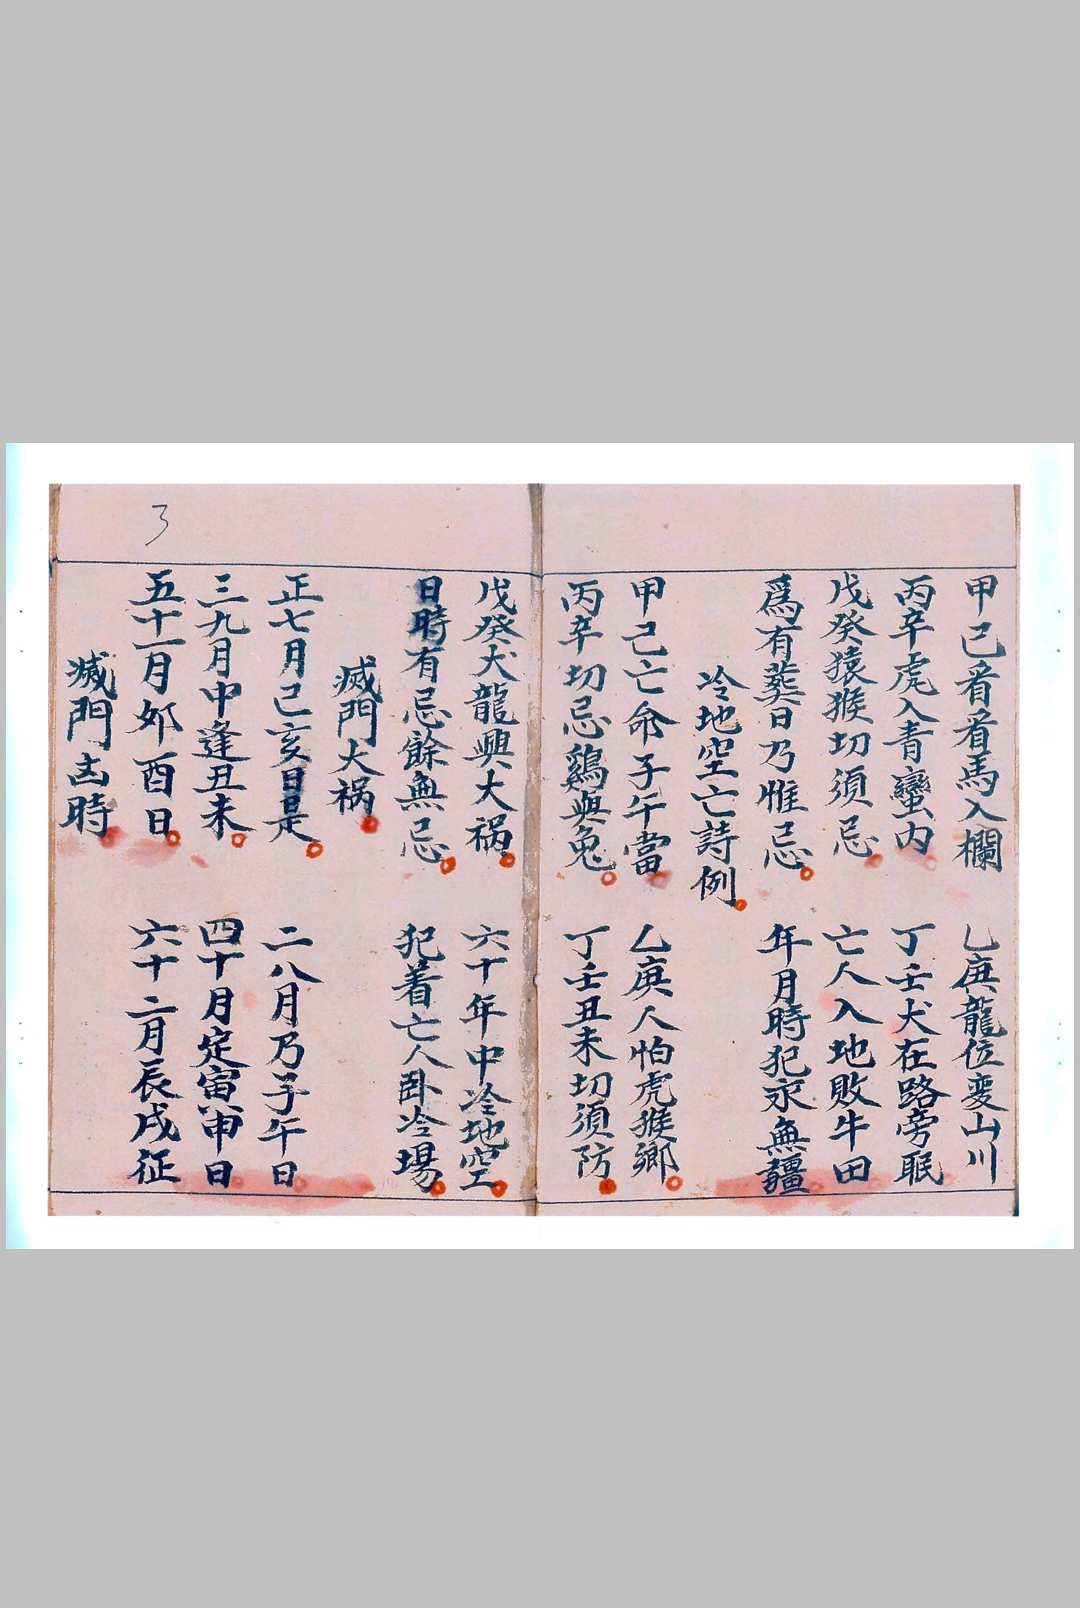 甲己看看馬入欄 乙庚龍位变山川
丙辛虎入青蠻内 丁壬犬在路旁眠
戊癸猿猴切須忌 亡人入地敗牛田
爲有葬日乃惟忌 年月時犯永無疆
冷地空亡詩例
甲己亡命子午當 乙庚人怕虎猴鄉
丙辛切忌鷄與兔 丁壬丑未切須防
戊癸犬龍興大祸 六十年中冷地空
日時有忌餘無忌 犯着亡人卧冷場
滅門大祸
正七月己亥日是 二八月乃子午日
三九月中逢丑未 四十月定寅申日
五十一月夘酉日 六十二月辰戌征
滅門凶時
3